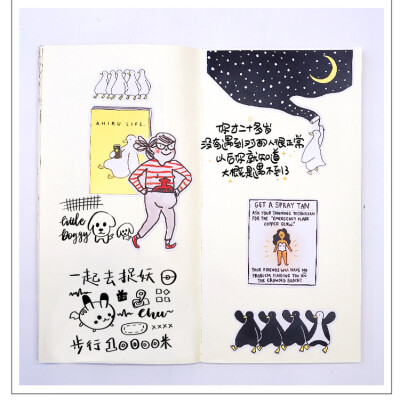 AHIRU LIFE.
little
Doggy
一起去捉妖
chu
xxxx
步行10000米
你才二十多岁
没有遇到对的人很正常
以后你就知道
大概是遇不到了
GET A SPRAY TAN
ASK YOUR TANNING TECHNICIAN
FOR THE "EMERGENCY FLARE
COPPER GLOW."
YOUR FRIENDS WILL HAVE NO
PROBLEM FINDING YOU ON
THE CROWDED BEACH!